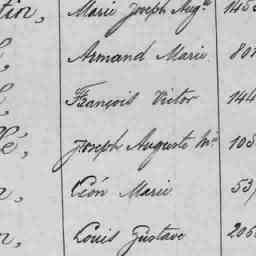 tin, Marie Joseph Aug.te 145
Armand Marie 80
François Victor 144
é, Joseph Auguste M.ie 105
Léon Marie 53
Louis Gustave 206